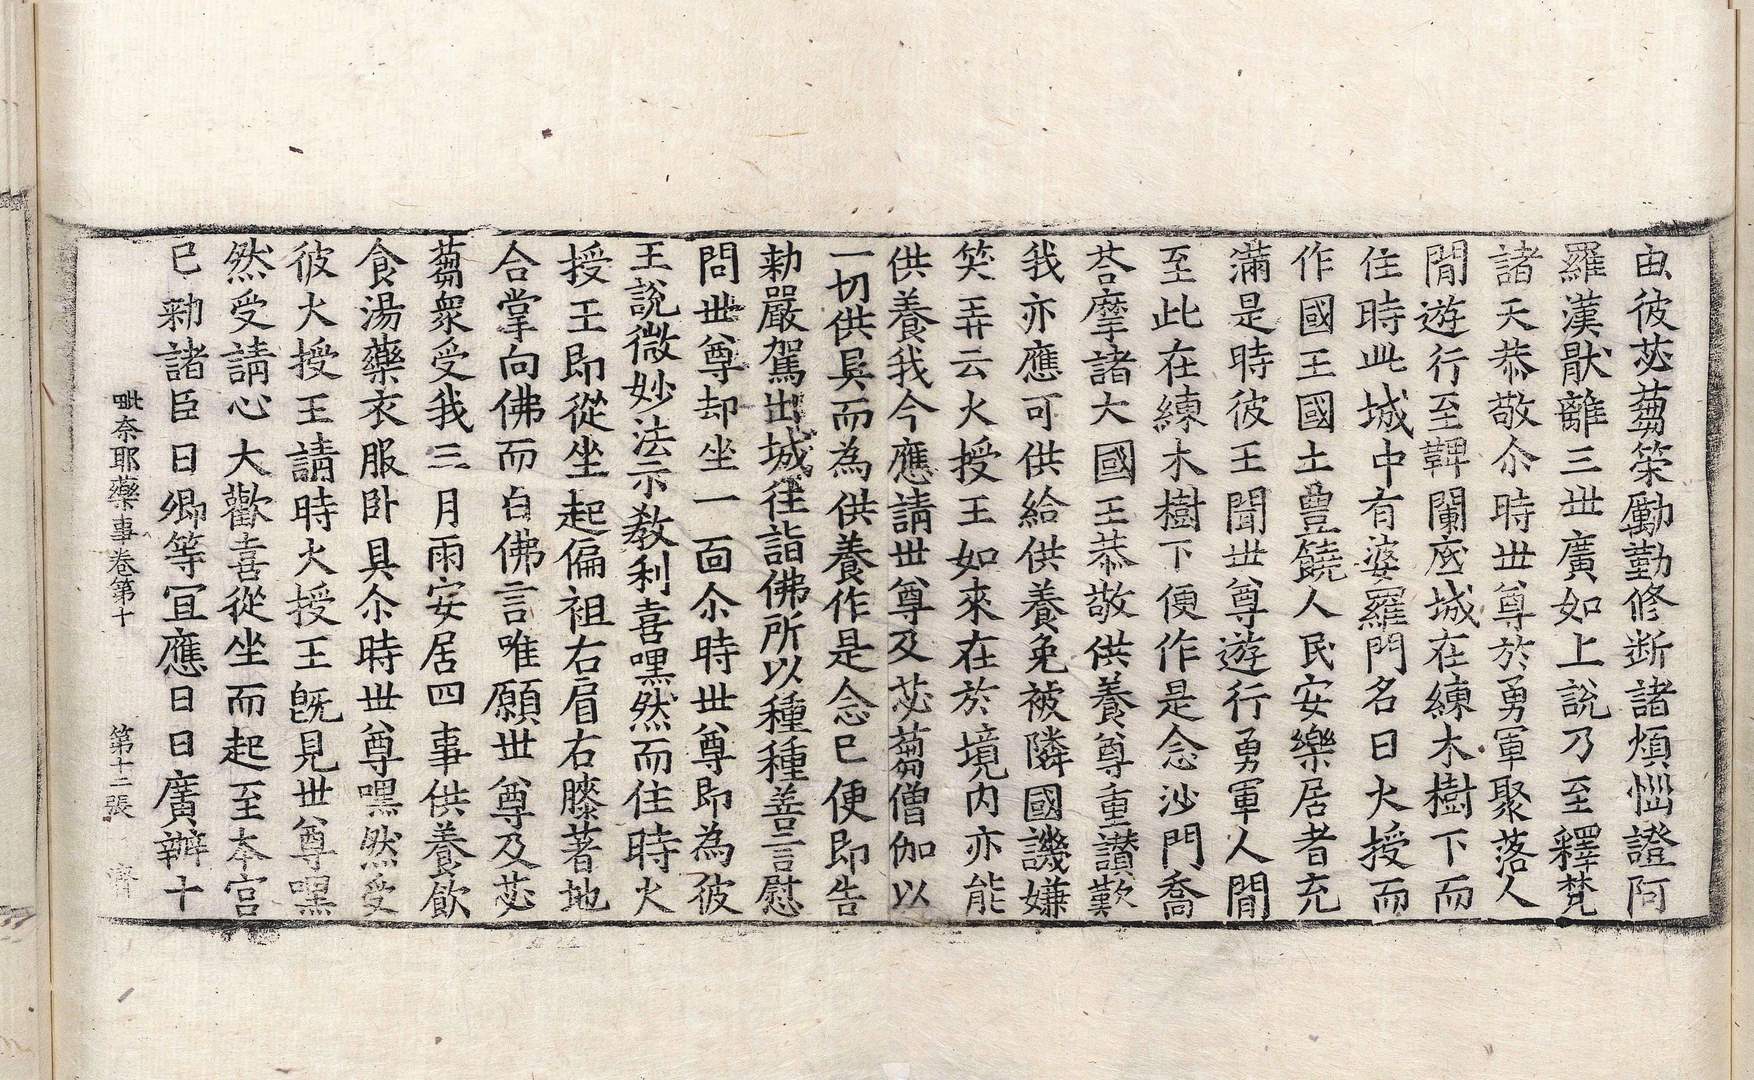 由彼苾蒭策勵勤修断諸煩惱證阿
羅漢猒離三世廣如上說乃至釋梵
諸天恭敬尒時世尊於勇軍聚落人
閒遊行至鞞闌底城在練木樹下而
住時此城中有婆羅門名曰火授而
作國王國土豊饒人民安樂居者充
滿是時彼王聞世尊遊行勇軍人閒
至此在練木樹下便作是念沙門喬
荅摩諸大國王恭敬供養尊重讃歎
我亦應可供給供養免被隣國譏嫌
笑弄云火授王如來在於境內亦能
供養我今應請世尊及苾蒭僧伽以
一切供具而為供養作是念已便即告
勑嚴駕出城往詣佛所以種種善言慰
問世尊却坐一面尒時世尊即為彼
王說微妙法示教利喜嘿然而住時火
授王即從坐起偏袒右肩右膝著地
合掌向佛而白佛言唯願世尊及苾
蒭衆受我三月雨安居四事供養飮
食湯藥衣服卧具尒時世尊嘿然受
彼火授王請時火授王旣見世尊嘿
然受請心大歡喜從坐而起至本宮
已勑諸臣曰卿等宜應日日廣辦十
毗奈耶藥事卷第十 第十二張